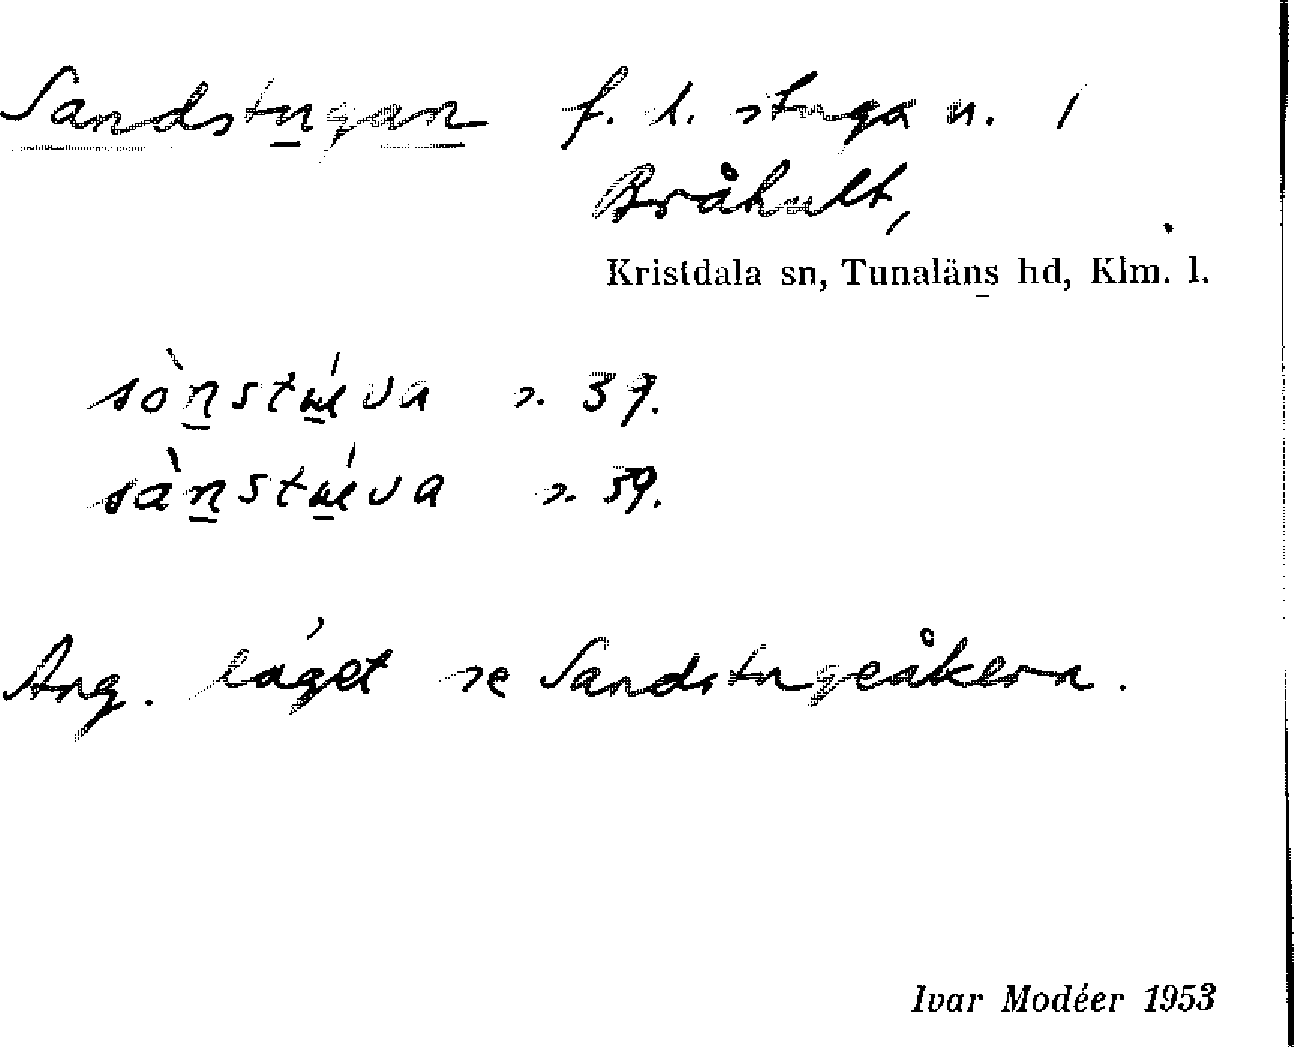 Sandstugan f. d. stuga u. 1
Bråhult,
Kristdala sn, Tunaläns hd, Klm. l.
sònstú̲va s. 39.
sànstú̲va s. 59.
Ang. läget se Sandstugeåkern.
Ivar Modéer 1953